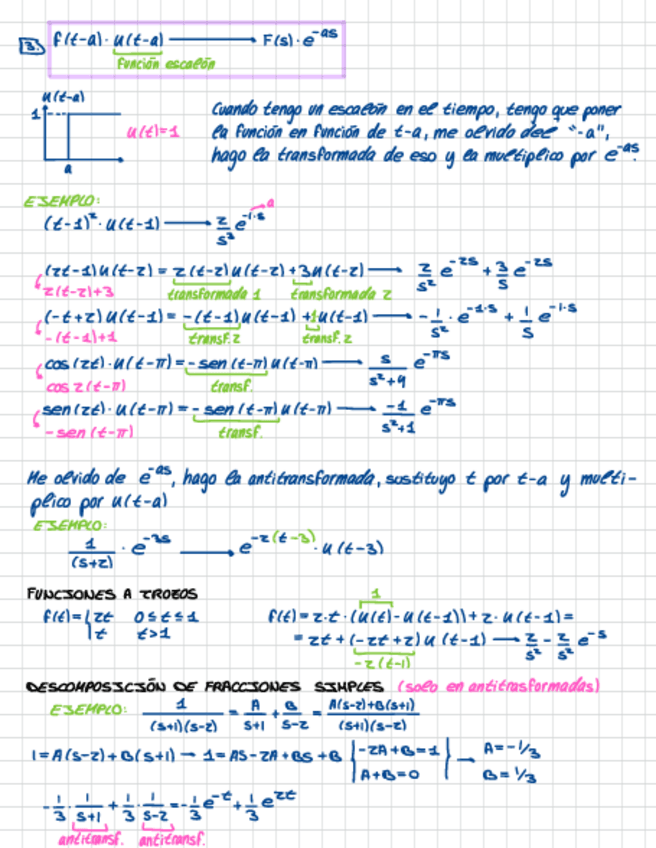 3. f(t-a) · u(t-a) ⟶ F(s) · e^{-as}
función escalón
u(t-a)
1
u(t)=1
a
Cuando tengo un escalón en el tiempo, tengo que poner
la función en función de t-a, me olvido del "-a",
hago la transformada de eso y la multiplico por e^{-as}.
EJEMPLO:
(t-1)² · u(t-1) ⟶ 2/s³ e^{-1·s} → a
(2t-1)u(t-2) = 2(t-2)u(t-2) + 3u(t-2) ⟶ 2/s² e^{-2s} + 3/s e^{-2s}
2(t-2)+3 transformada 1 transformada 2
(-t+2)u(t-1) = -(t-1)u(t-1) + 1u(t-1) ⟶ -1/s² · e^{-1·s} + 1/s e^{-1·s}
-(t-1)+1 transf. 2 transf. 2
cos(2t) · u(t-π) = -sen(t-π)u(t-π) ⟶ s/(s²+4) e^{-πs}
cos 2(t-π) transf.
sen(2t) · u(t-π) = -sen(t-π)u(t-π) ⟶ -1/(s²+1) e^{-πs}
-sen(t-π) transf.
Me olvido de e^{-as}, hago la antitransformada, sustituyo t por t-a y multi-
plico por u(t-a)
EJEMPLO:
1/(s+2) · e^{-3s} ⟶ e^{-2(t-3)} · u(t-3)
FUNCIONES A TROZOS
f(t) = { 2t 0≤t≤1
t t>1
1
f(t) = 2·t·(u(t)-u(t-1)) + 2·u(t-1) =
= 2t + (-2t+2)u(t-1) ⟶ 2/s² - 2/s² e^{-s}
-2(t-1)
DESCOMPOSICIÓN DE FRACCIONES SIMPLES (solo en antitrasformadas)
EJEMPLO: 1/((s+1)(s-2)) = A/(s+1) + B/(s-2) = (A(s-2)+B(s+1))/((s+1)(s-2))
1 = A(s-2) + B(s+1) → 1 = AS-2A+BS+B | -2A+B=1 | → A=-1/3
| A+B=0 | B=1/3
-1/3 · 1/(s+1) + 1/3 · 1/(s-2) = -1/3 e^{-t} + 1/3 e^{2t}
antitransf. antitransf.